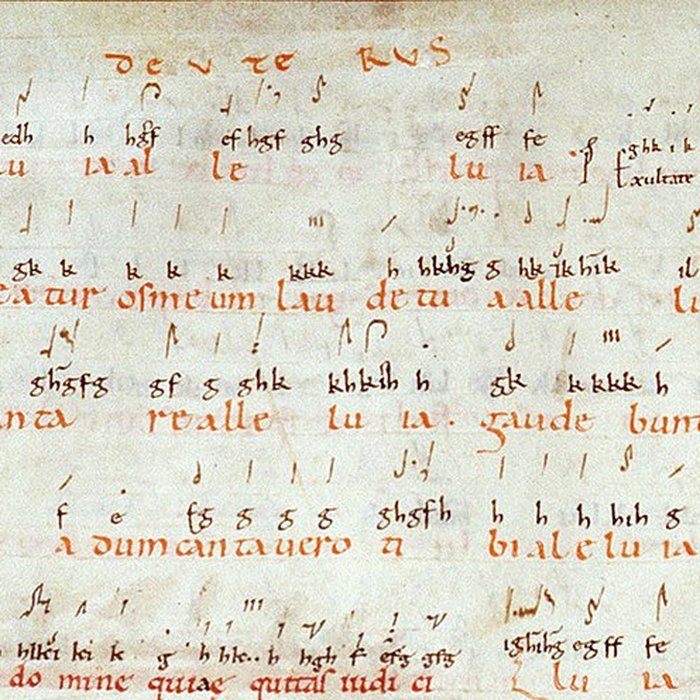 DEUTERUS
edh h hgf ef hgf ghg egff fe ghk ik
lu ia al le lu ia Exultate
gk k k k k kkk h hkhg g hk ik hik
ea tur os me um lau de tu a alle
ghgfg gf g ghk khkih h gk k kkk h
anta re alle lu ia. gaude bunt
f e fg g g g ghgfh h h h hih g
a dum canta vero ti bi ale lu ia
k g h hk..h hgh f efg gfg ighihg egff fe
do mine quiae iudi ci lu ia